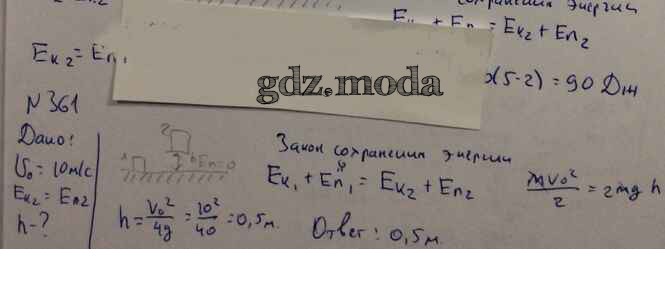 сохранения энергии
Eк₁ + Eп₁ = Eк₂ + Eп₂
Eк₂ = Eп₁
gdz.moda
(5-2) = 90 Дж
N361
Дано:
U₀ = 10 м/с
Eк₂ = Eп2
h-?
2
1
h Eп=0
Закон сохранения энергии
0
Eк₁ + Eп₁ = Eк₂ + Eп2
mv₀²/2 = 2mgh
h = V₀²/4g = 10²/40 = 0,5м.
Ответ: 0,5м.